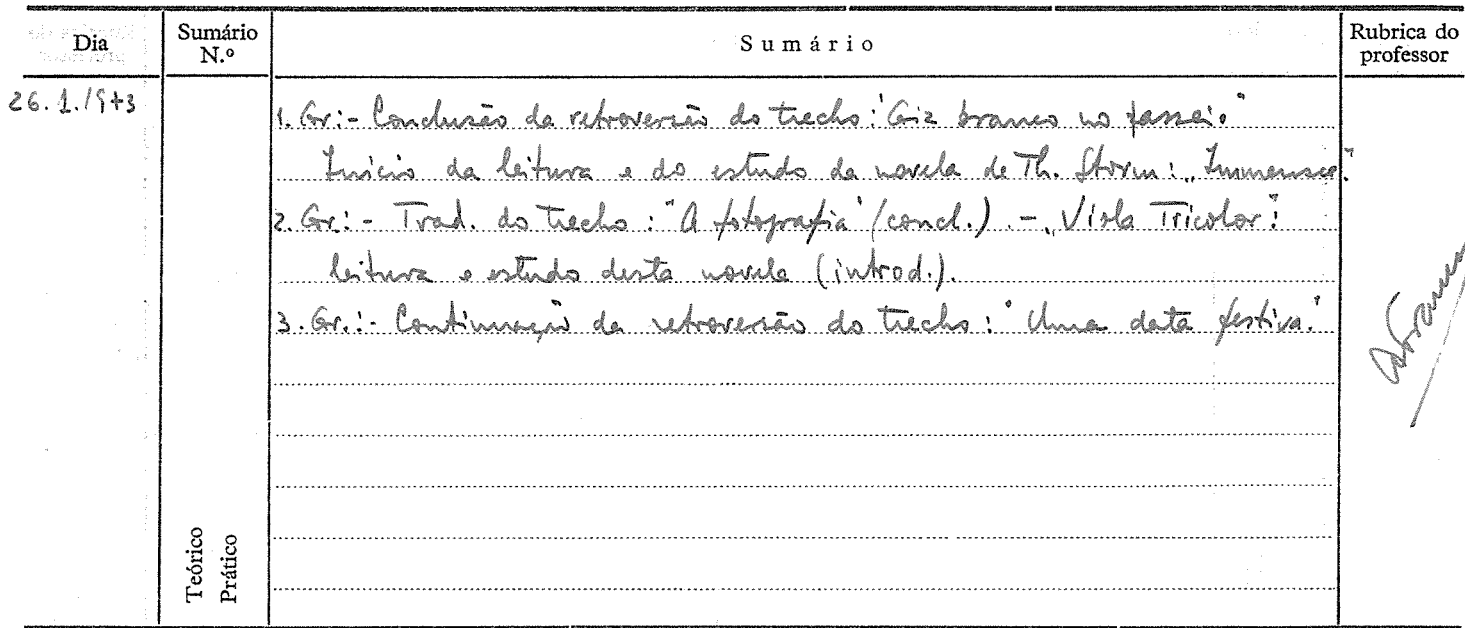 Dia
Sumário N.º
Sumário
Rubrica do professor
26.1.1973
1. Gr:- Conclusão da retroversão do trecho: "Giz branco no passeio"
Início da leitura e do estudo da novela de Th. Storm: „Immensee".
2. Gr:- Trad. do trecho: "A fotografia" (concl.). - „Viola Tricolor":
leitura e estudo desta novela (introd.).
3. Gr.:- Continuação da retroversão do trecho: "Uma data festiva."
Teórico
Prático